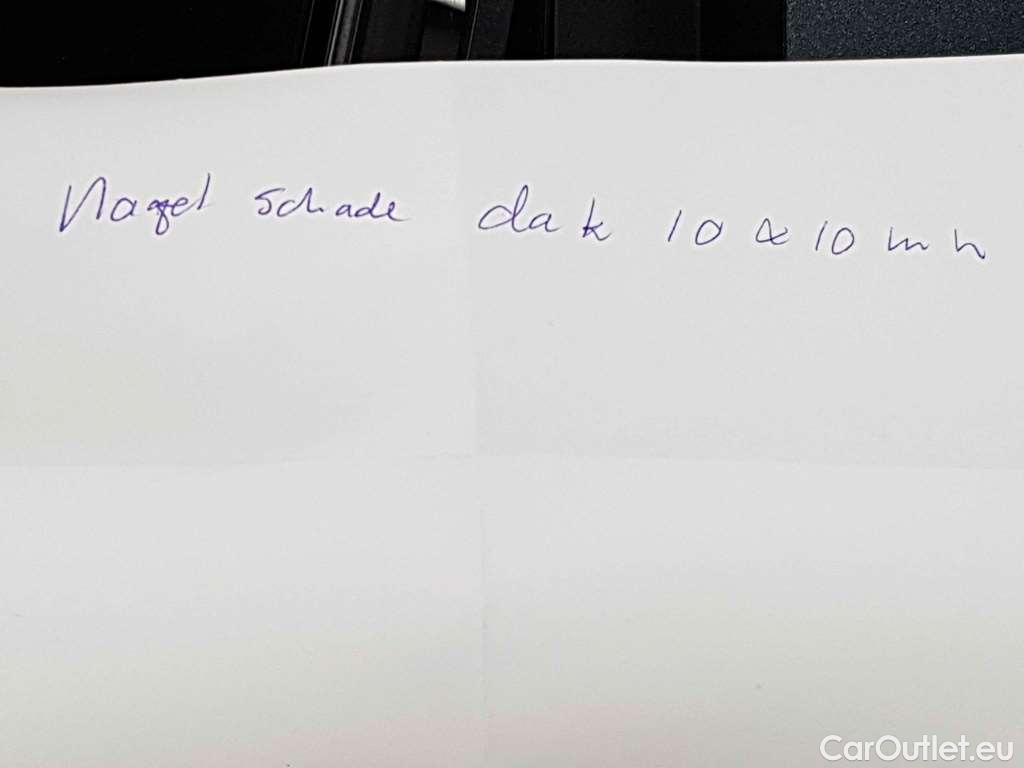 Hagel schade dak 10 x 10 mm
CarOutlet.eu